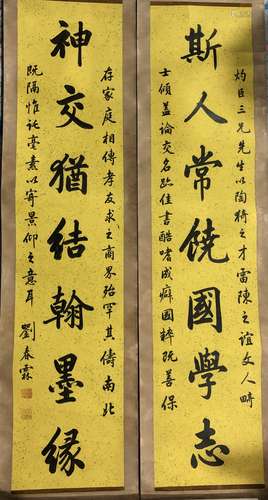 斯人常饶國學志
灼臣三兄先生以陶猗之才雷陳之誼文人疇
士傾盖論交名跡佳書酷嗜成癖國粹既善保
存家庭相傳孝友求之商界殆罕其儔南北
神交猶結翰墨緣
既隔惟託毫素以寄景仰之意耳
劉春霖